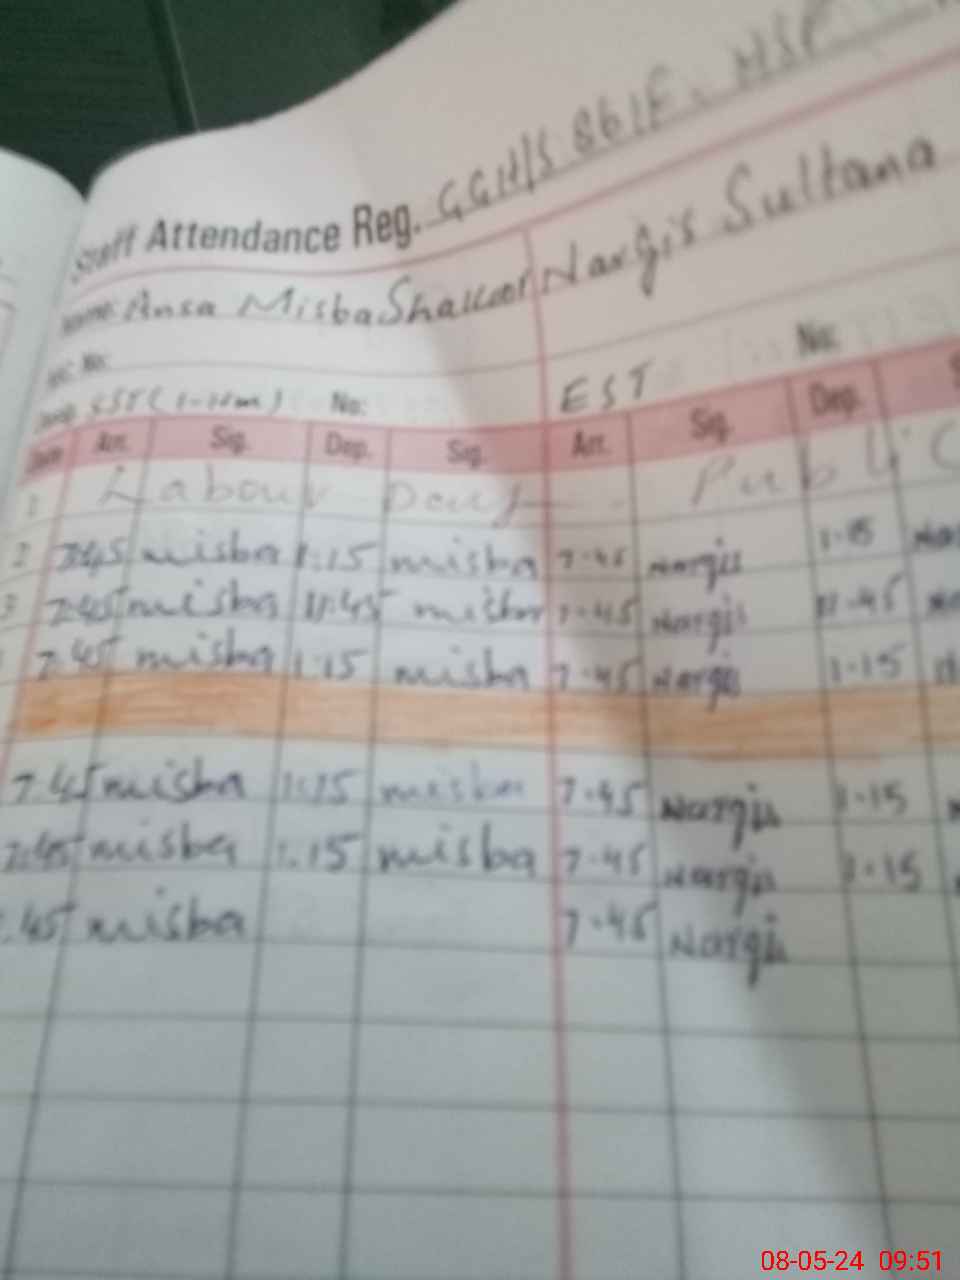 Staff Attendance Reg. GGH/S 861F. HSP
Name: Ansa Misba Shakoor Nargis Sultana
No:
SST ( No: EST No:
Date Arr. Sig. Dep. Sig. Arr. Sig. Dep. S
1 Labour Day Public
2 7:45 misba 1:15 misba 7.45 Nargis 1.15 Nar
3 7:45 misba 11:45 misba 7.45 Nargis 11.45
7.45 misba 1:15 misba 7.45 Nargis 1.15
7.45 misba 1:15 misba 7.45 Nargis 1.15
7:45 misba 1.15 misba 7.45 Nargis 1.15
.45 misba 7.45 Nargis
08-05-24 09:51